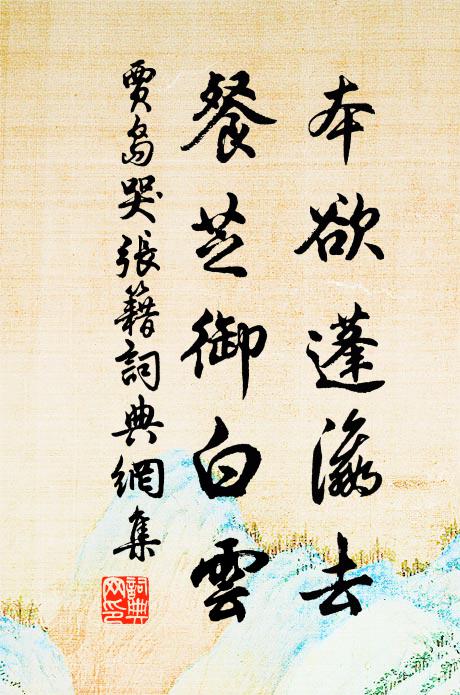 本欲蓬瀛去
餐芝御白雲
賈島哭張籍詞典網集
詞典网印